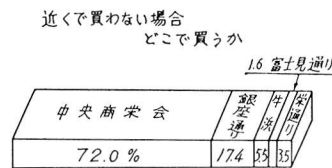 近くで買わない場合
どこで買うか
1.6 富士見通り
中央商栄会
銀座通り
牛浜
栄通り
72.0%
17.4
5.5
3.5